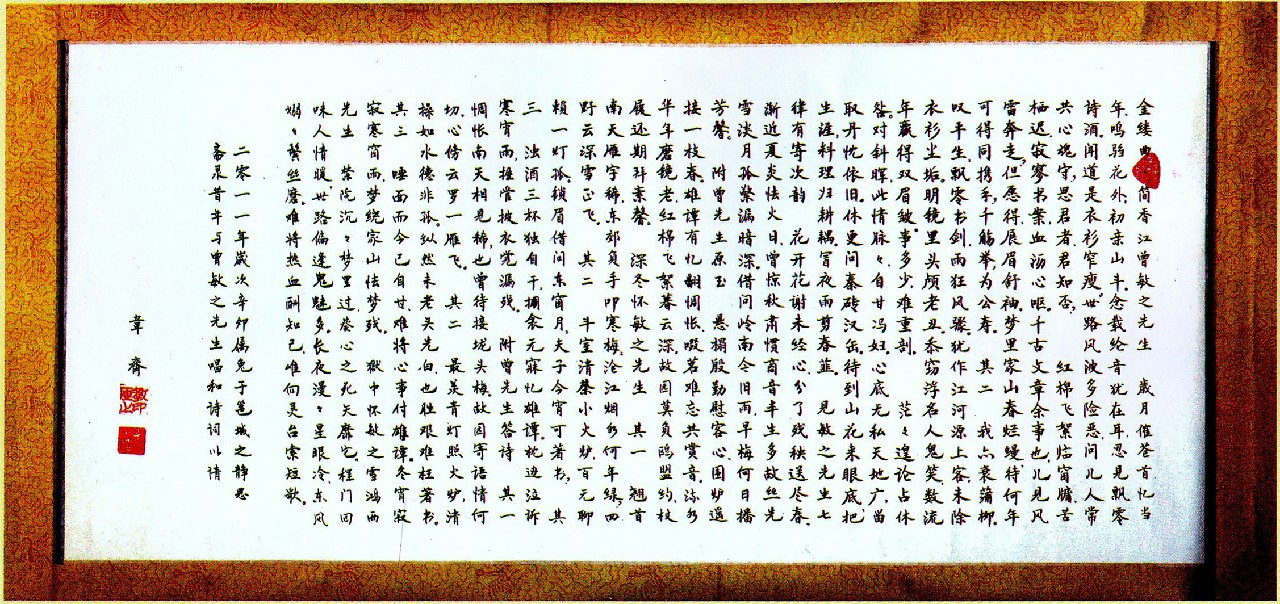 金缕曲 简香江曾敏之先生 岁月催答首忆当
年鸣驺花外初亲山斗念载纶音犹在耳忍见飘零
诗酒闻道是衣衫窄瘦世路风波多险恶问儿人常
共心魂守思君者君知否 红棉飞絮临窗牖苦
栖迟寂寥书案血沥心呕千古文章余事也儿见风
雷奔走但愿得展眉舒袖梦里家山春烂缦待何年
可得同携手千觞举为公寿 其二 我亦衰蒲柳
叹平生飘零书剑雨狂风骤犹作江河源上客未除
衣衫尘垢明镜里头颅老丑忝窃浮名人鬼笑数流
年赢得双眉皱事多少难重剖 茫々遑论占休
咎对斜晖此情脉々自甘冯妇心底无私天地广留
取丹忱依旧休更问秦砖汉缶待到山花来眼底把
生涯料理归耕耦冒夜雨剪春韮 见敏之先生七
律有寄次韵 花开花谢未经心分了残秧送尽春
渐近夏炎怯火日曾惊秋肃惯商音半生多故丝先
雪淡月孤檠漏暗深借问岭南今旧雨早梅何日播
芳馨 附曾先生原玉 悬榻殷勤慰客心围炉遥
接一枝春雄谭有忆翻惆怅啜茗难忘共赏音沵水
华年磨镜老红棉飞絮暮云深故园莫负鸥盟约杖
履还期拜素馨 深冬怀敏之先生 其一 翘首
南天雁字稀东郊负手叩寒梅沧江烟水何年绿四
野云深雪正飞 其二 斗室清桊小火炉百元聊
赖一灯孤锁眉借问东窗月夫子今宵可著书 其
三 浊酒三杯独自干拥衾无寐忆雄谭枕边泣诉
寒宵雨挂管披衣觉漏残 附曾先生答诗 其一
惆怅南天相见稀也曾待接垅头梅故园寄语情何
切心傍云罗一雁飞 其二 最羡青灯照火炉清
操如水德非孤纵然未老头先白也胜艰难枉著书
其三 唾面而今已自甘难将心事付雄谭冬宵寂
寂寒窗雨梦绕家山怯梦残 狱中怀敏之雪鸿两
先生 茫茫沉々梦里过秦心之死矢靡它程门回
味人情暖世路偏逢鬼魅多长夜漫々星眼冷东风
嫋々鬓丝磨难将热血酬知己唯向灵台索短歌
二零一一年岁次辛卯属兔于邕城之静思
斋录昔年与曾敏之先生唱和诗词以情
韋齋